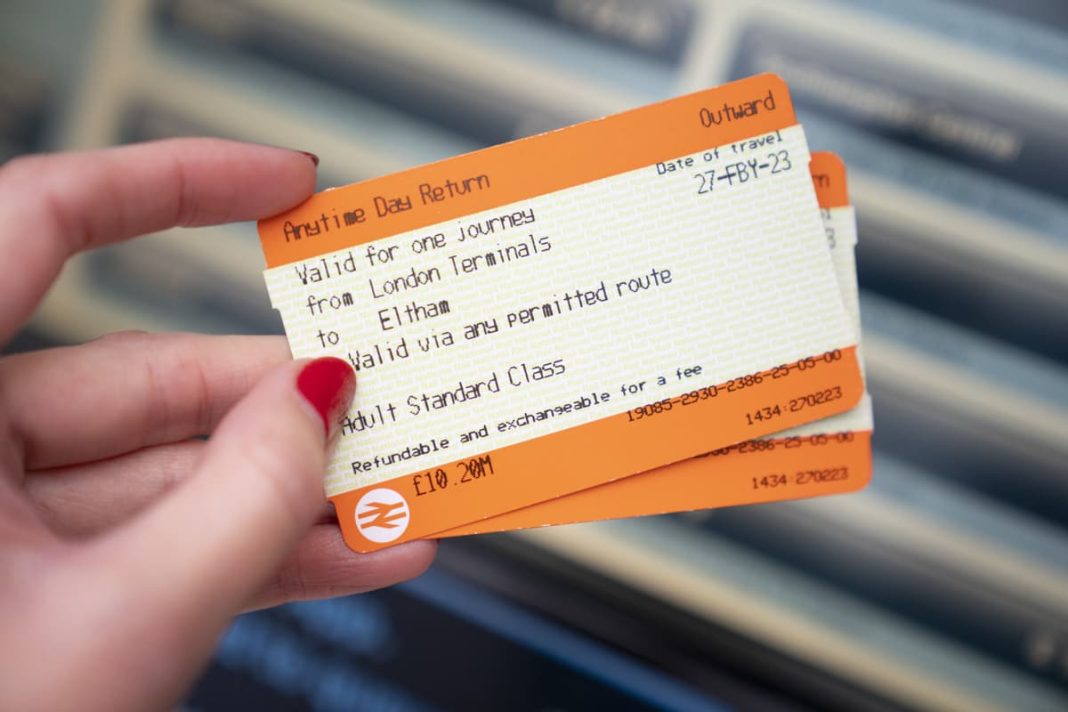 Outward
Anytime Day Return
Date of travel
27-FBY-23
Valid for one journey
from London Terminals
to Eltham
Valid via any permitted route
Adult Standard Class
Refundable and exchangeable for a fee
19085-2930-2386-25-05-00
£10.20M
1434:270223
1434:270223